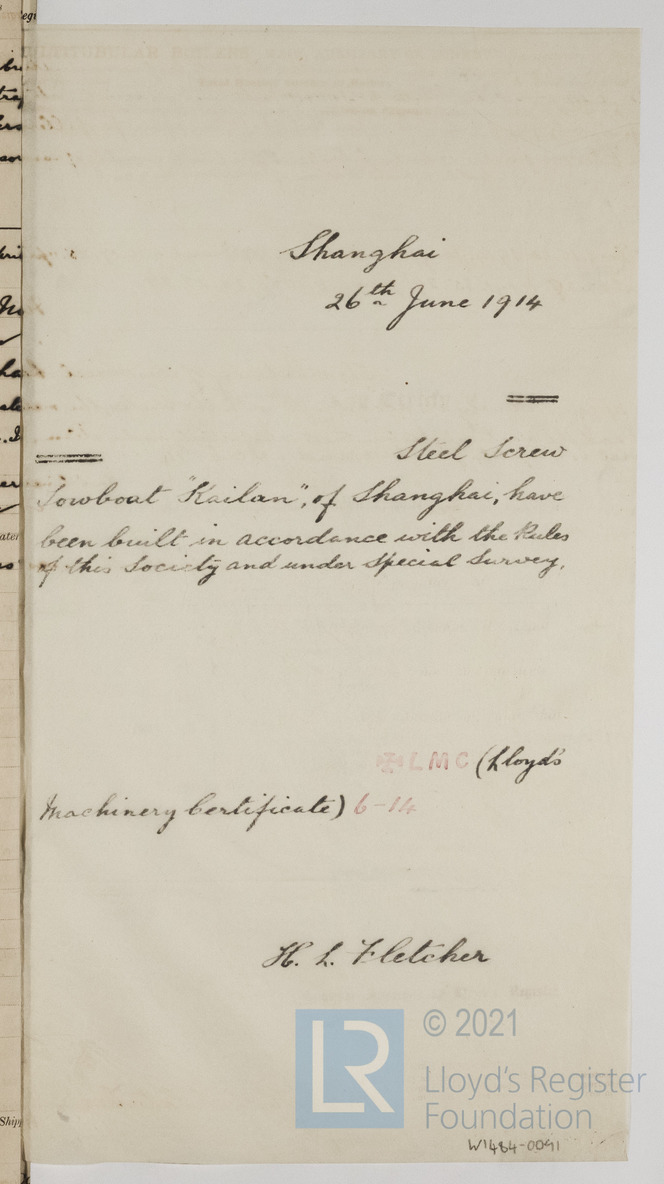 Shanghai
26th June 1914
Steel Screw
Towboat "Kailan", of Shanghai, have
been built in accordance with the Rules
of this Society and under Special Survey.
✠ LMC (Lloyd's
Machinery Certificate) 6-14
H. L. Fletcher
LR
© 2021
Lloyd's Register
Foundation
W1484-0091